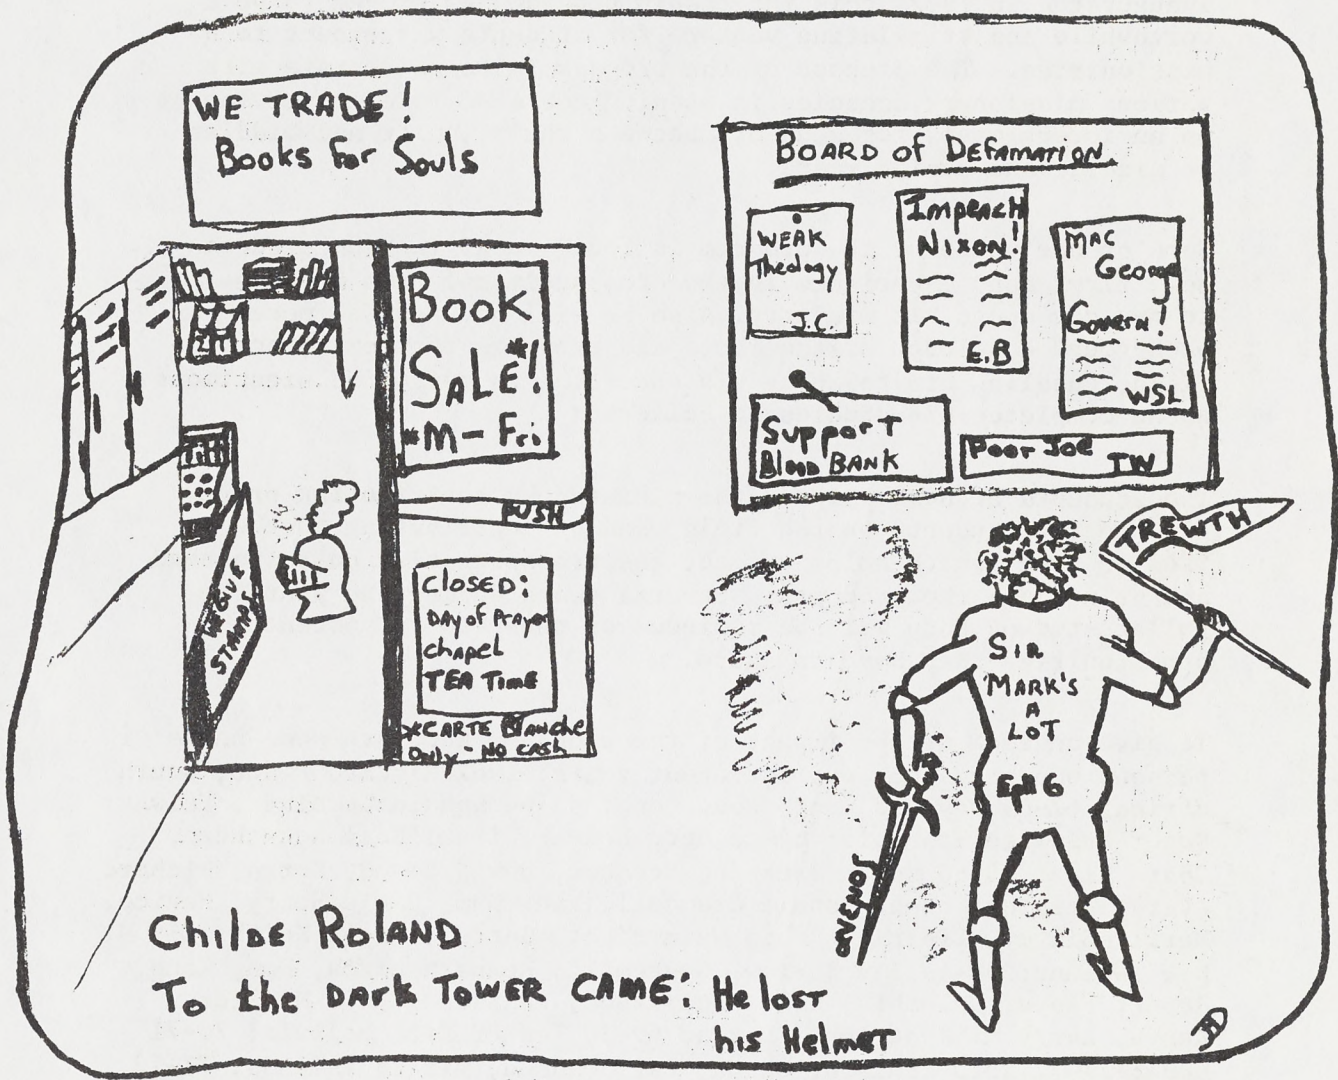 WE TRADE!
Books for Souls
Book
SALE*!
*M - Fri.
PUSH
CLOSED:
DAY of Prayer
Chapel
TEA Time
*CARTE Blanche
Only - NO CASH
WE GIVE
STAMPS
BOARD of DEFAMATION
WEAK
Theology
J.C.
Impeach
NIXON!
E.B
MAC
George
Govern!
WSL
Support
Blood BANK
Poor Joe
TW
TREWTH
SIR
MARK'S
A
LOT
Eph 6
Childe ROLAND
To the DARK TOWER CAME: He lost
his Helmet